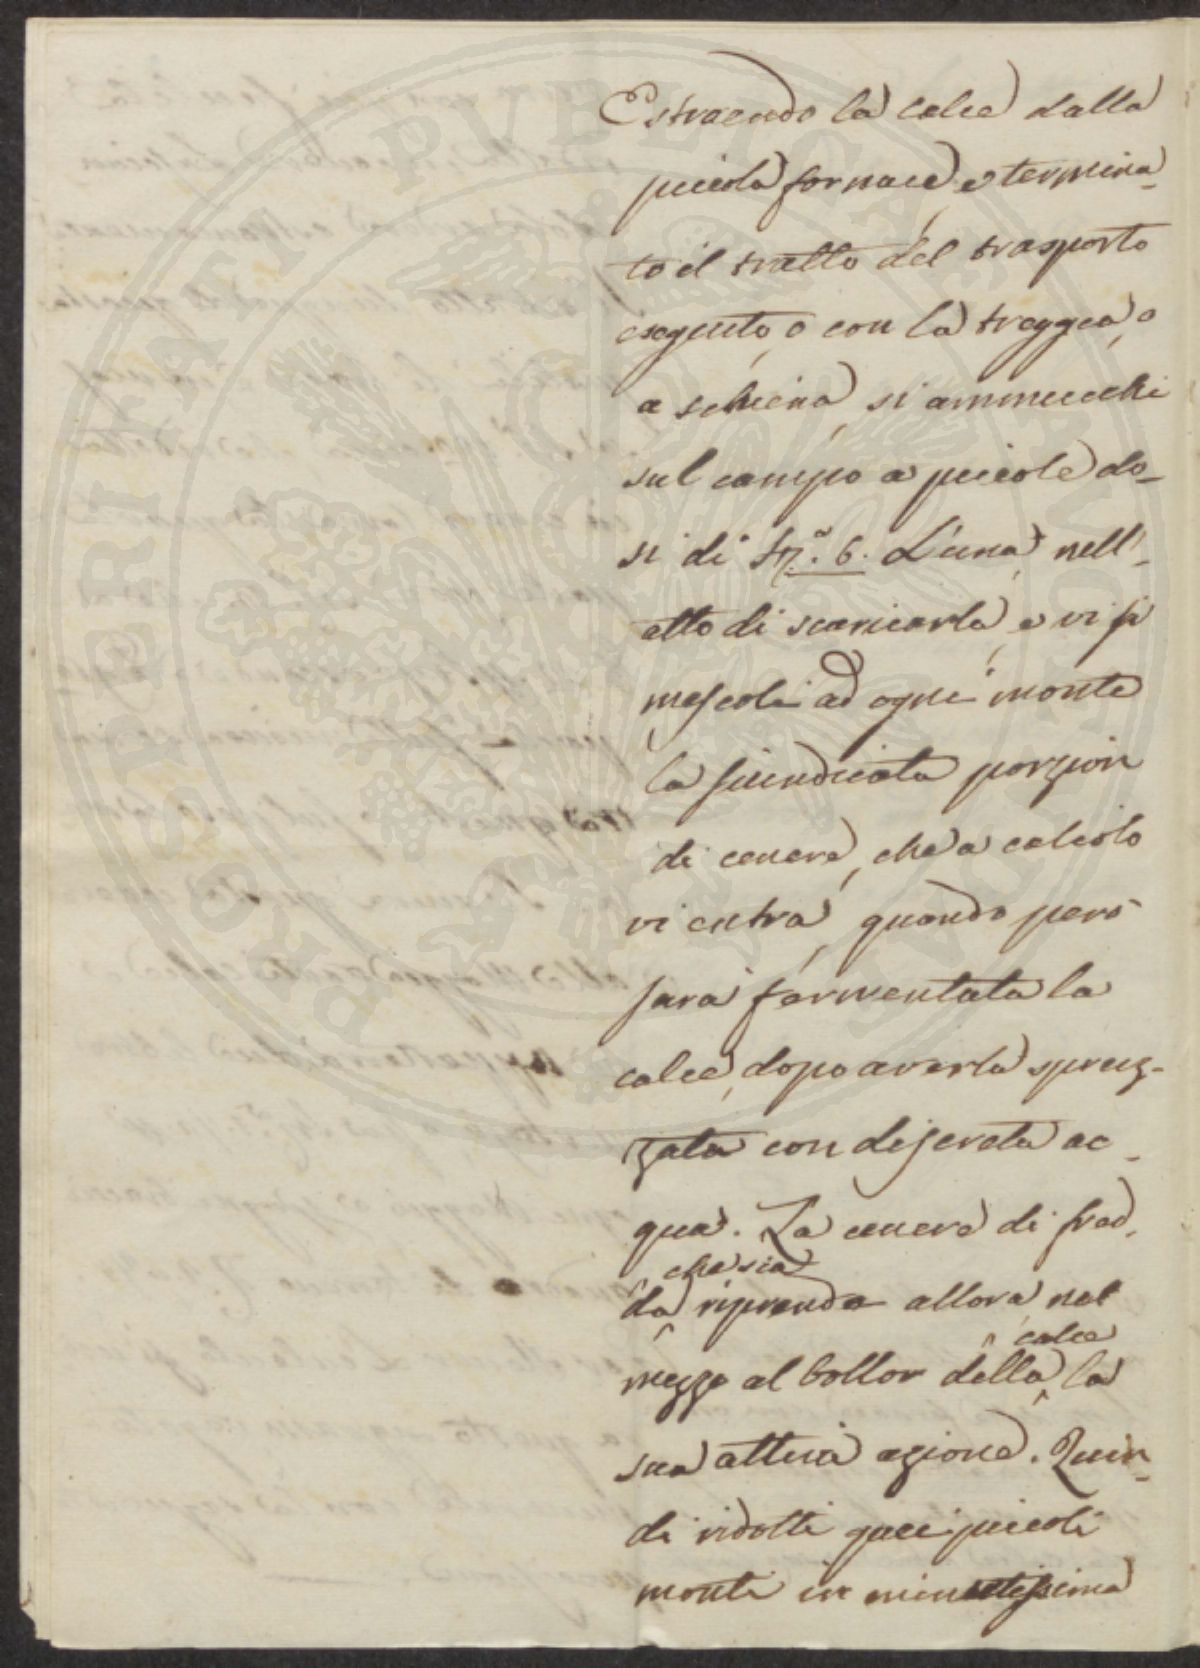 Estraendo la calce dalla
piccola fornace, e termina-
to il tratto del trasporto
eseguito, o con la treggia, o
a schiena, si ammucchi
sul campo a piccole do-
si di 6. L'una, nell'-
atto di scaricarla, e vi si
mescoli ad ogni monte
la suindicata porzion
di cenere, che a calcolo
vi entra, quando però
sarà fermentata la
calce, dopo averla spruz-
zata con discreta ac-
qua. La cenere di fred-
che sia
da riprende allora nel
calce
mezzo al bollor della, la
sua attiva azione. Quin-
di ridotti quei piccoli
monti in minutissima
PROSPERI LAFI PVBLICAE